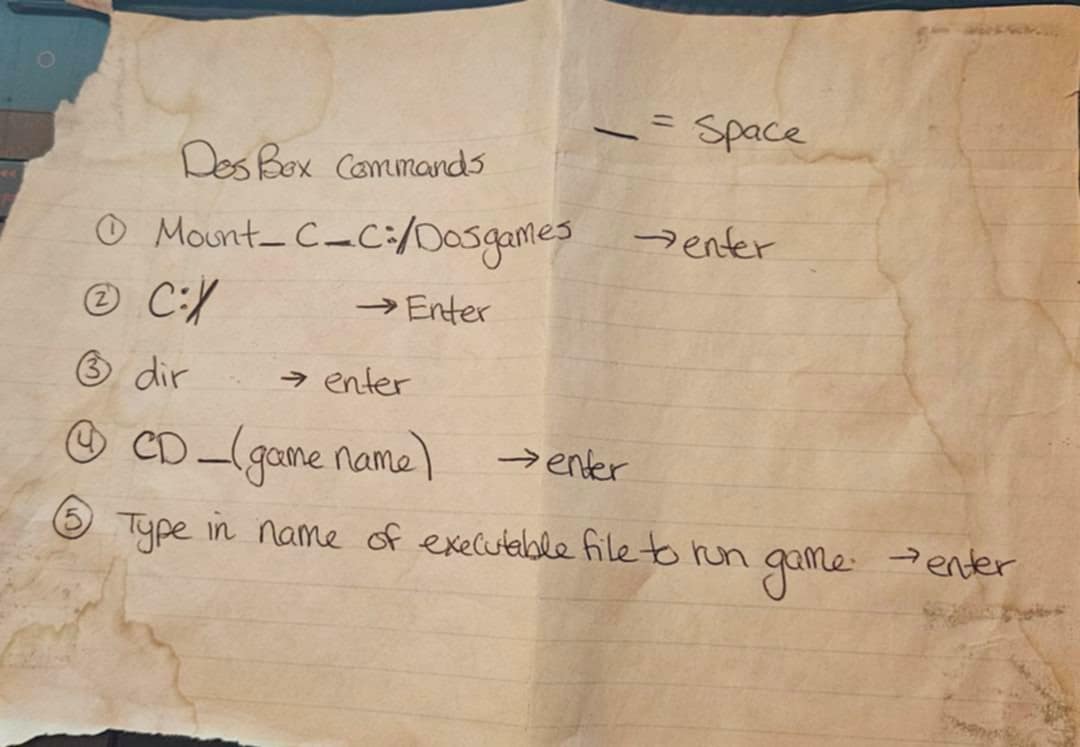 _ = Space
DosBox Commands
① Mount_C_C:/Dosgames → enter
② C:/ → Enter
③ dir → enter
④ CD_(game name) → enter
⑤ Type in name of executable file to run game. → enter